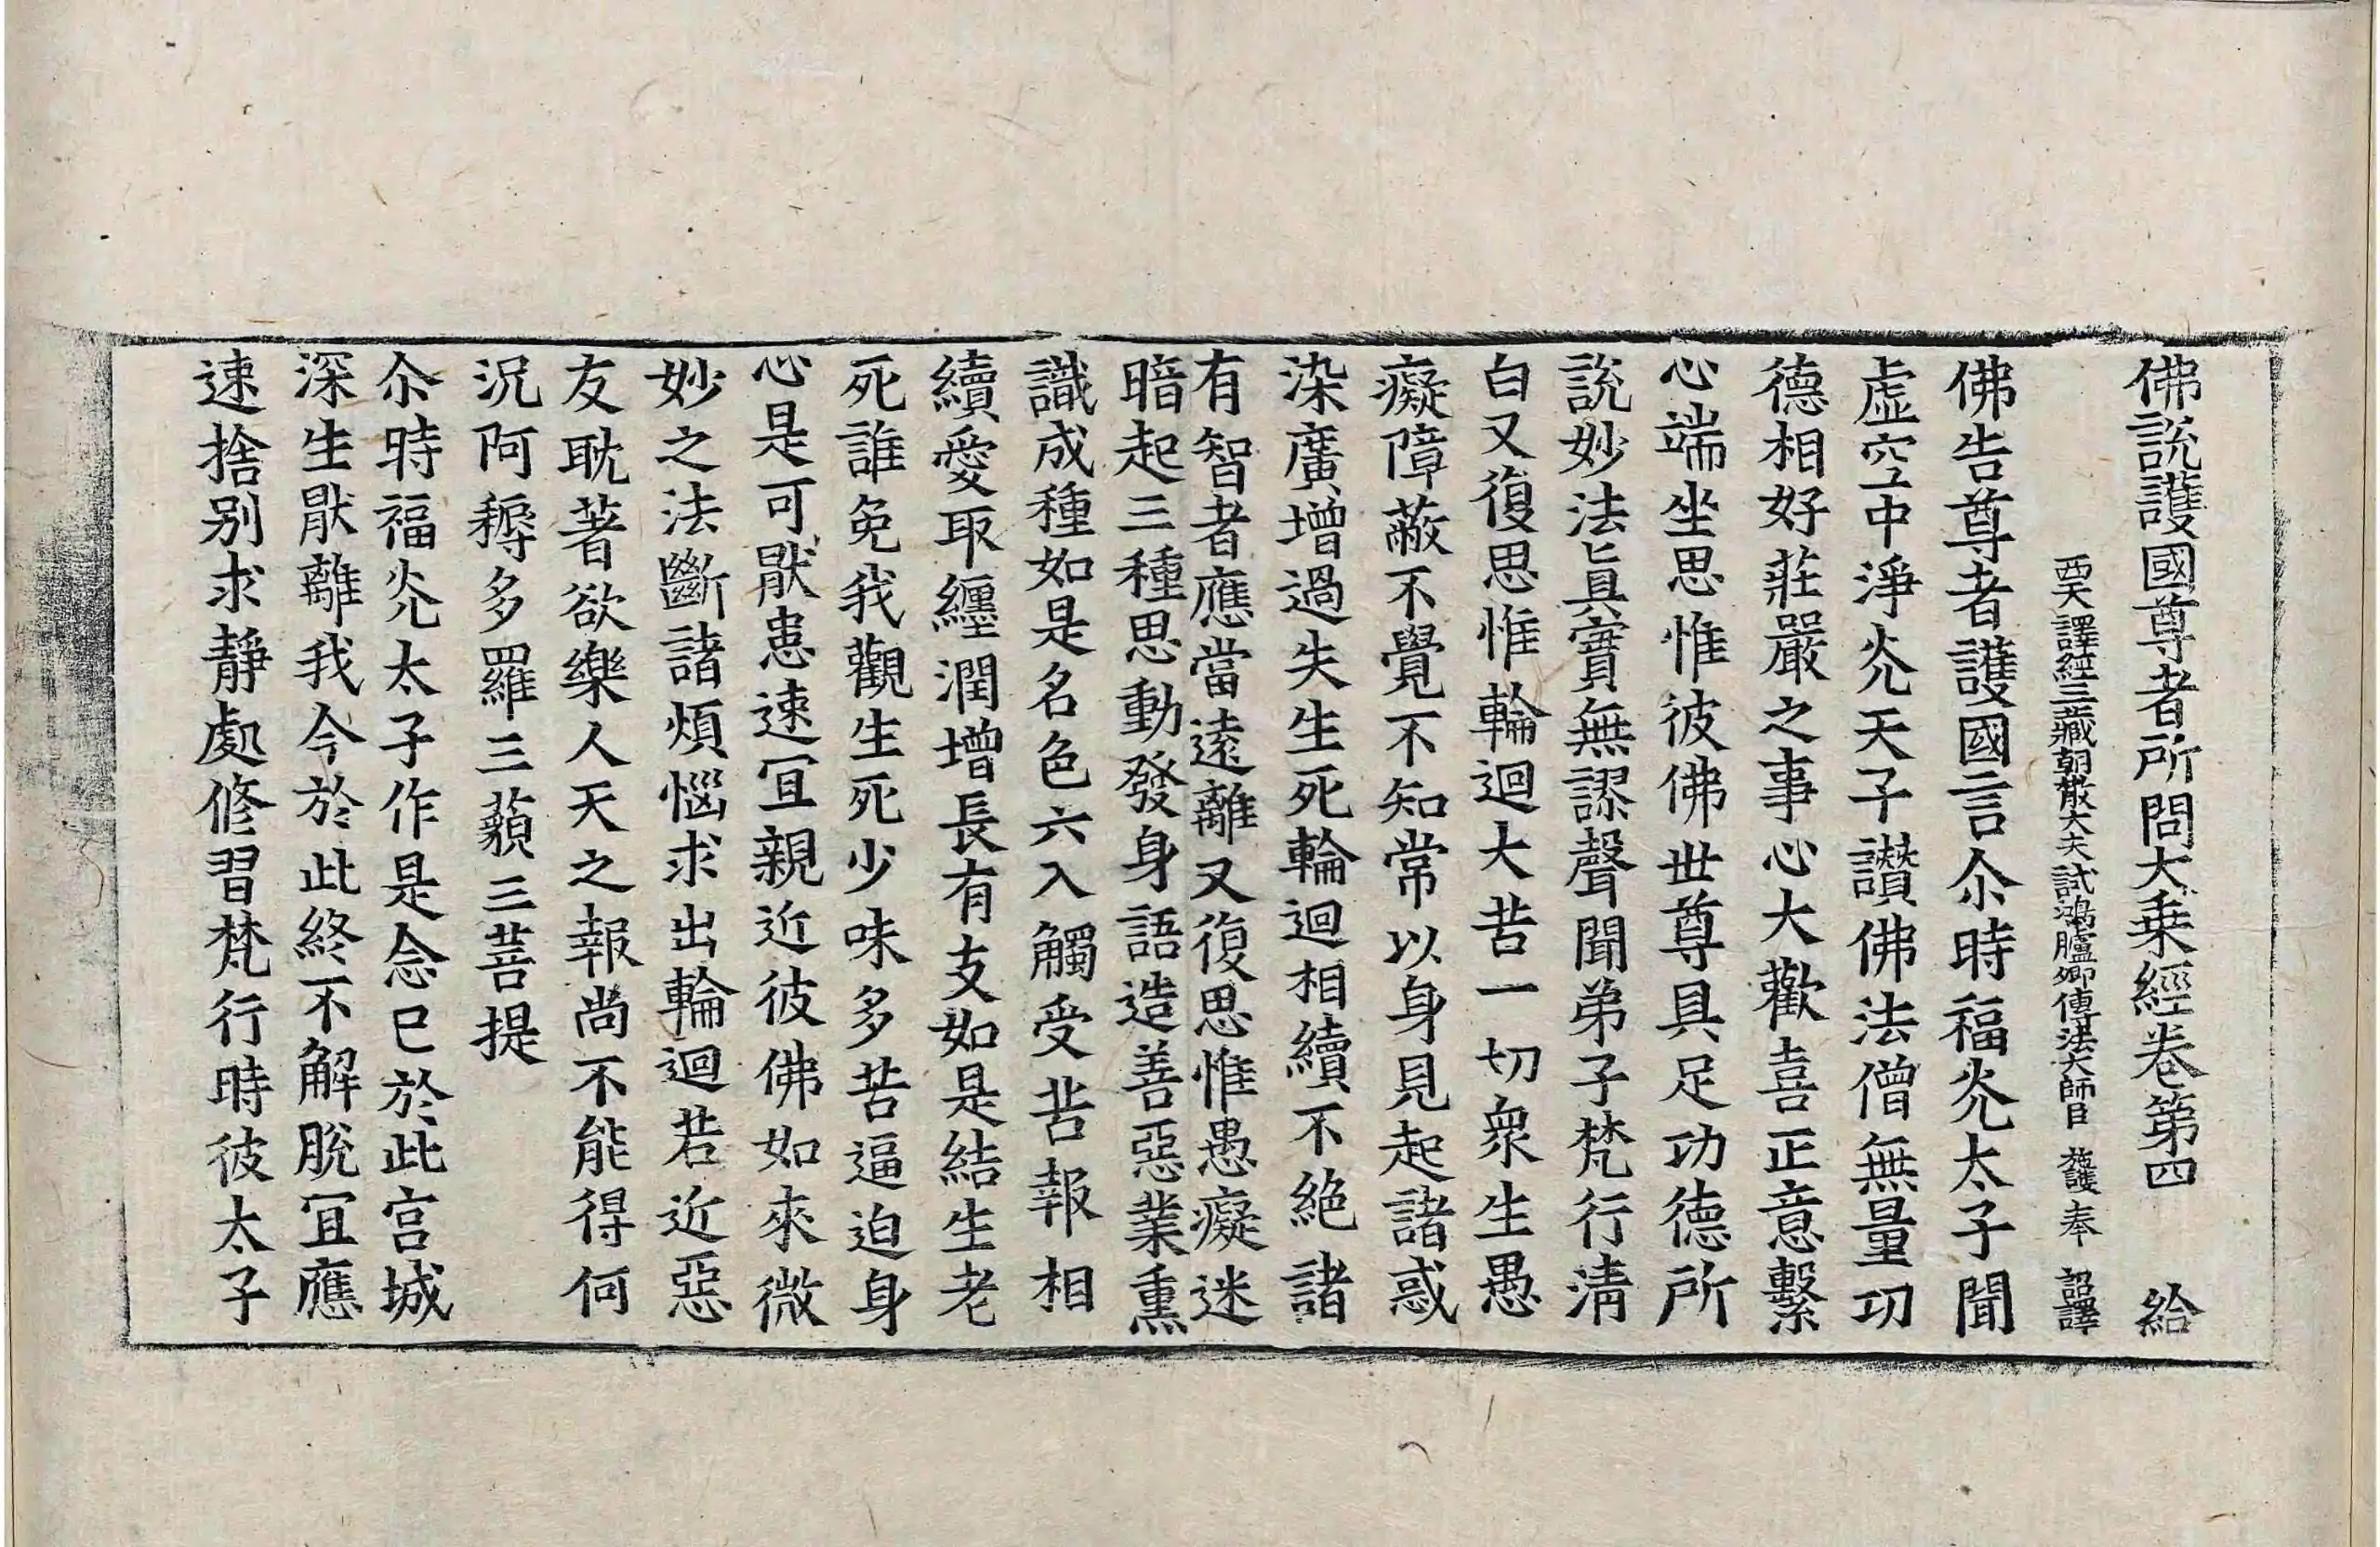 佛說護國尊者所問大乘經卷第四 給
西天譯經三藏朝散大夫試鴻臚卿傳法大師臣 施護 奉 詔譯
佛告尊者護國言尒時福光太子聞
虛空中淨光天子讃佛法僧無量功
德相好莊嚴之事心大歡喜正意繫
心端坐思惟彼佛世尊具足功德所
說妙法眞實無謬聲聞弟子梵行淸
白又復思惟輪迴大苦一切衆生愚
癡障蔽不覺不知常以身見起諸惑
染廣增過失生死輪迴相續不絶諸
有智者應當遠離又復思惟愚癡迷
暗起三種思動發身語造善惡業熏
識成種如是名色六入觸受苦報相
續愛取纏潤增長有支如是結生老
死誰免我觀生死少味多苦逼迫身
心是可猒患速冝親近彼佛如來微
妙之法斷諸煩惱求出輪迴若近惡
友耽著欲樂人天之報尚不能得何
況阿耨多羅三藐三菩提
尒時福光太子作是念已於此宫城
深生猒離我今於此終不解脫冝應
速捨别求靜處修習梵行時彼太子